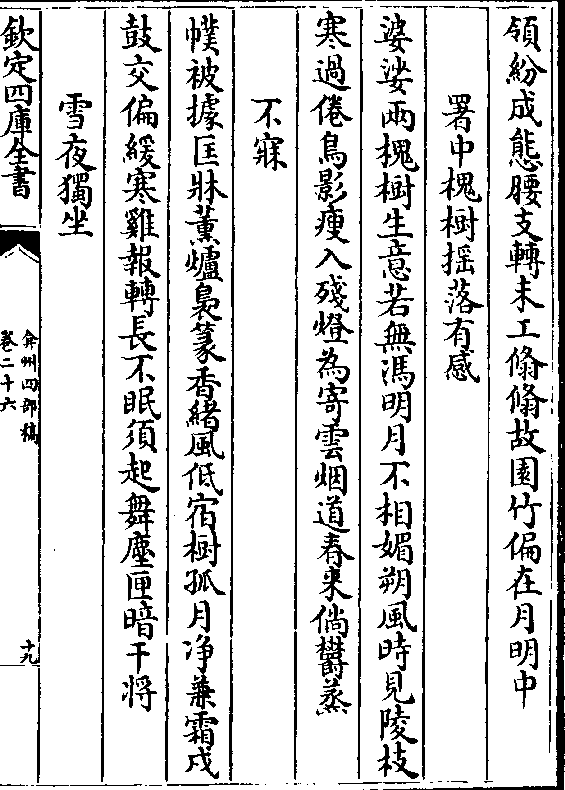 領紛成態腰支轉未工翛翛故園竹偏在月明中
署中槐樹揺落有感
婆娑兩槐樹生意若無馮明月不相媚朔風時見陵枝
寒過倦鳥影瘦入殘燈為寄雲烟道春来倘欝蒸
不寐
幞被據匡牀薰爐裊篆香緒風低宿樹孤月净兼霜戍
鼓交偏緩寒雞報轉長不眠須起舞塵匣暗干将
雪夜獨坐
欽定四庫全書
弇州四部稿
卷二十六
十九